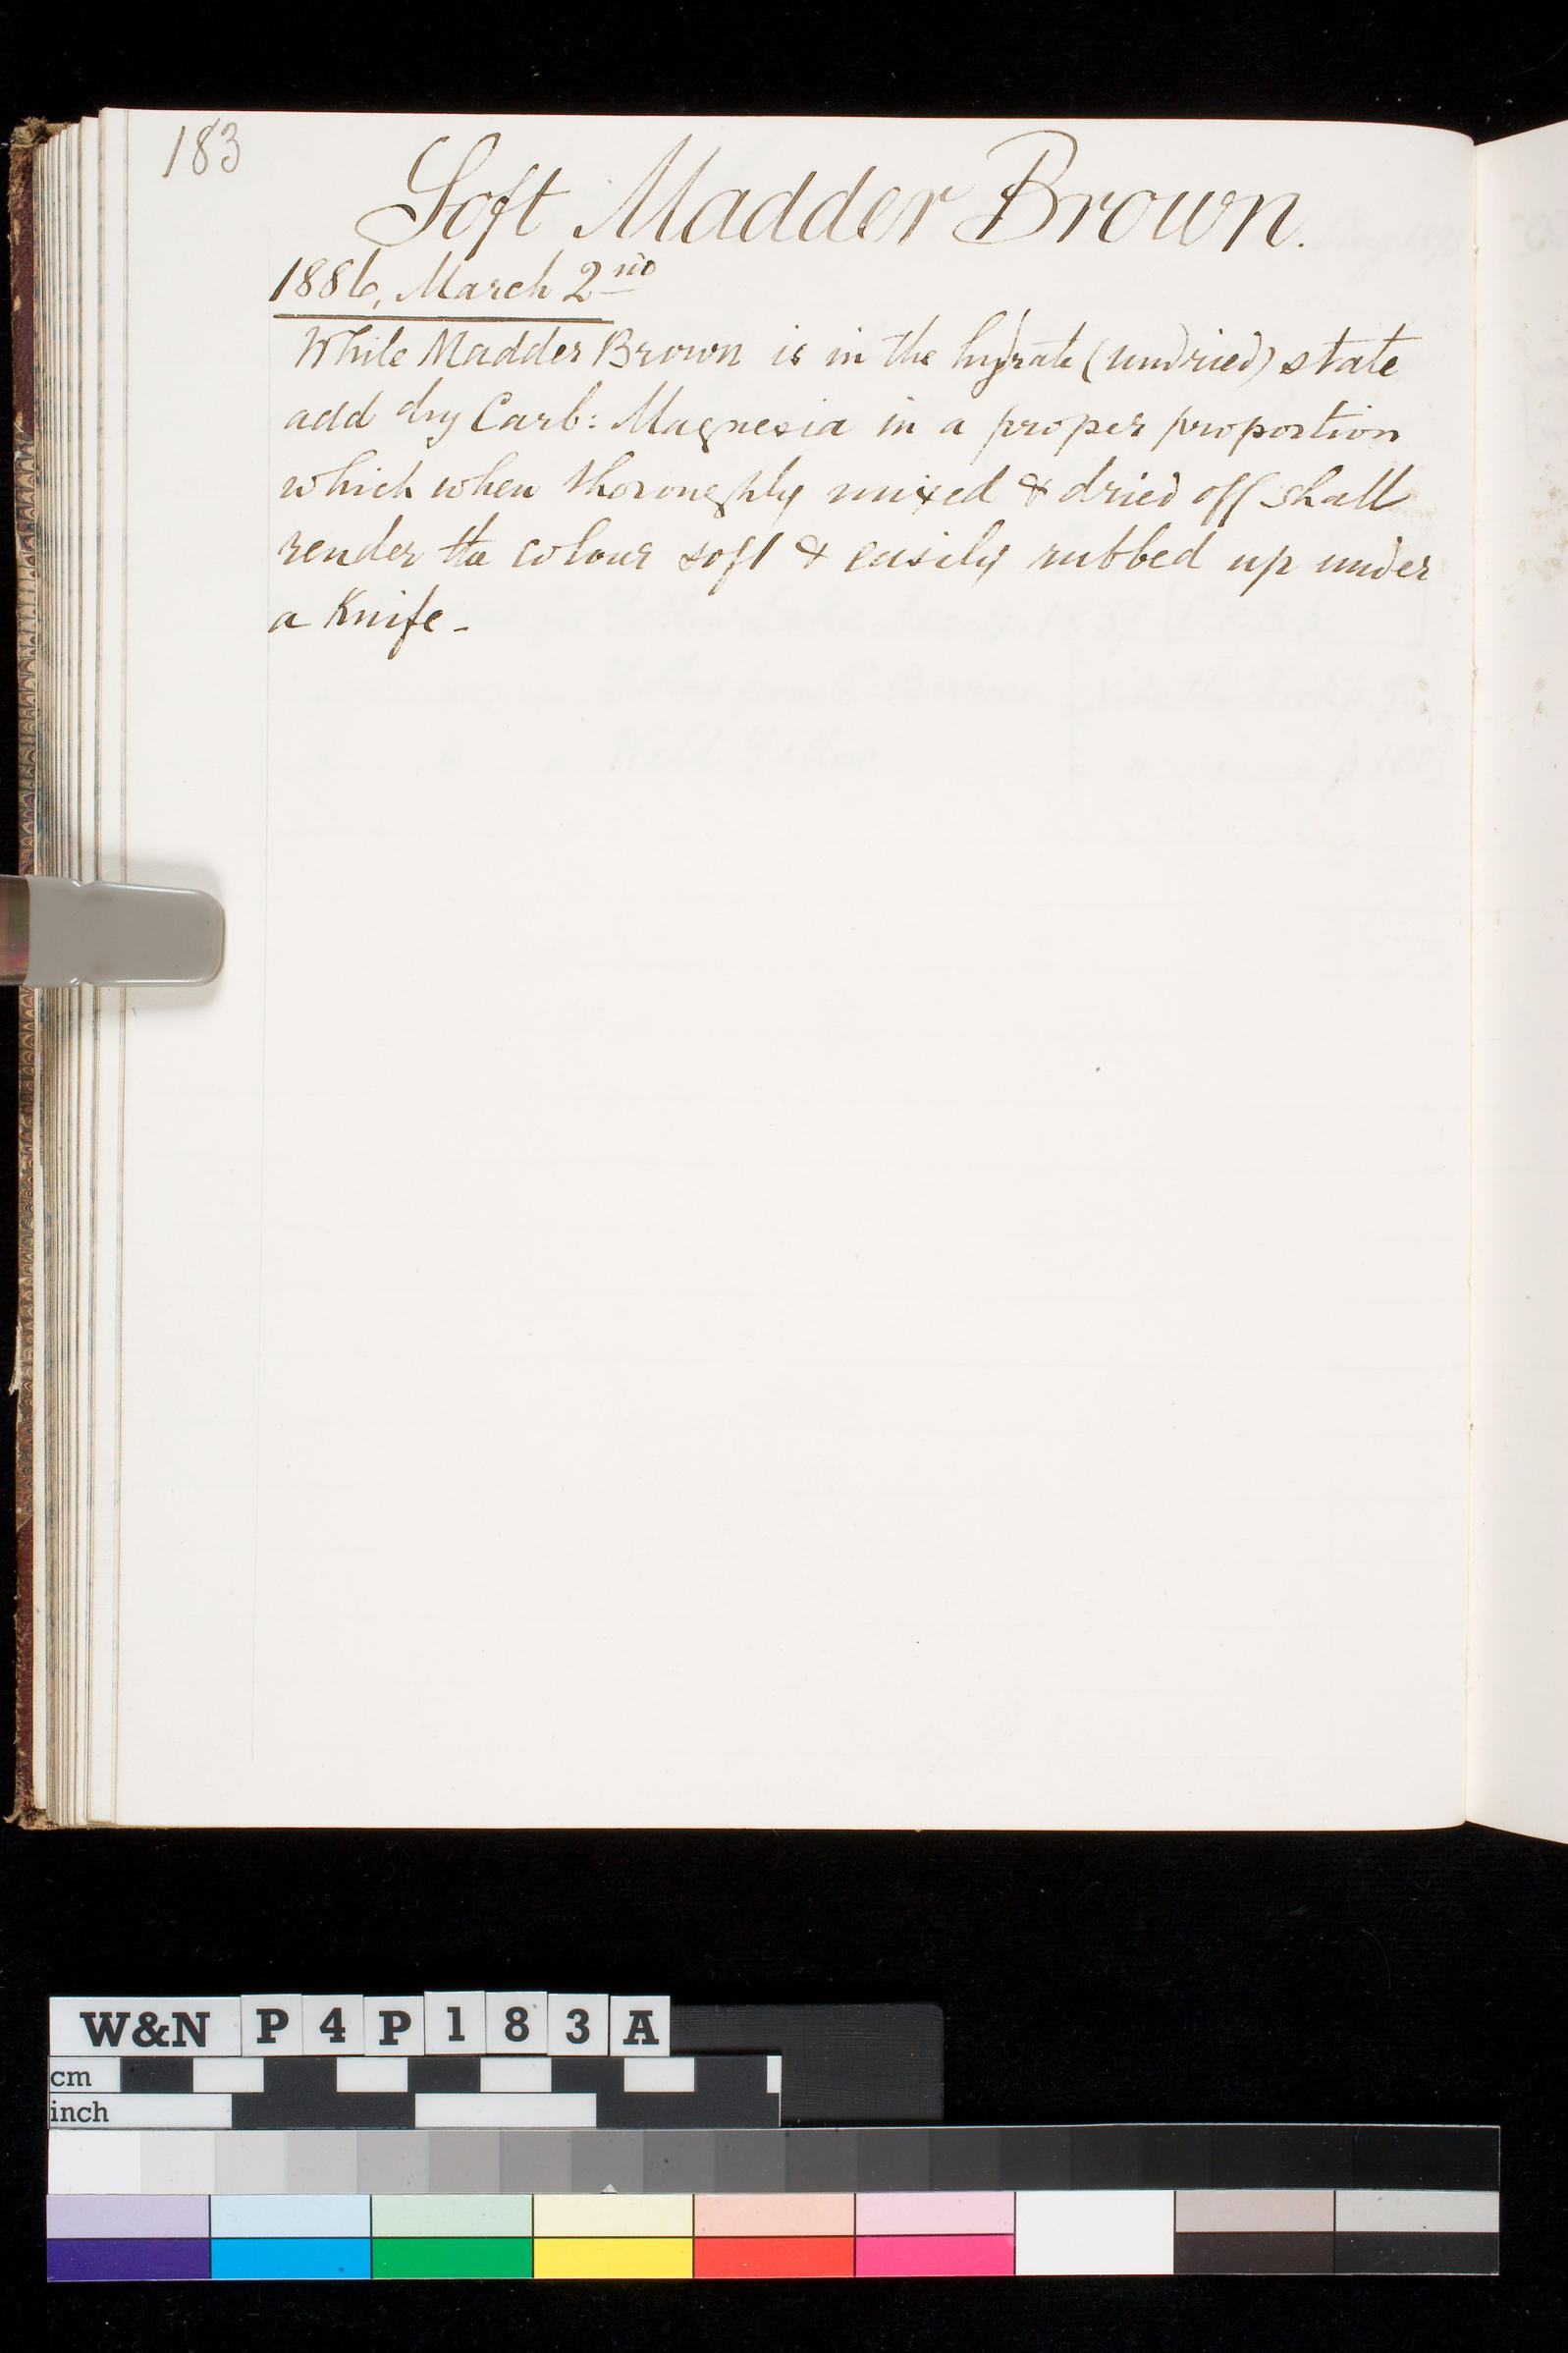 183
Soft Madder Brown.
1886, March 2nd
While Madder Brown is in the hydrate (undried) state
add dry Carb: Magnesia in a proper proportion
which when thoroughly mixed & dried off shall
render the colour soft & easily rubbed up under
a Knife -
W&N P4P183A
cm
inch